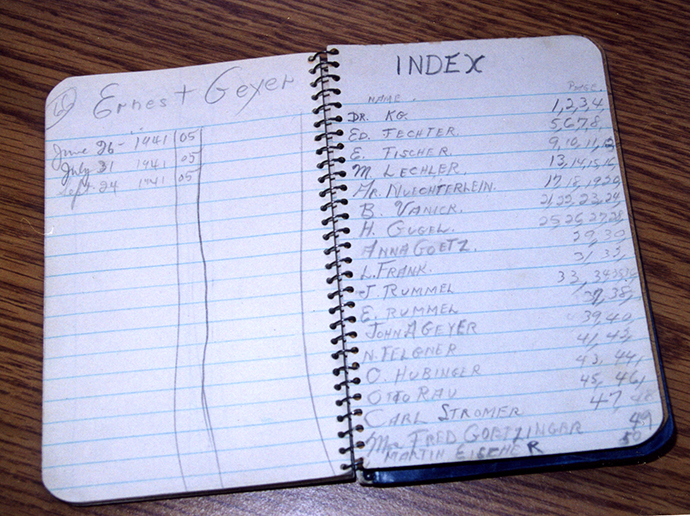 62 Ernest Geyer
June 26- 1941 05
July 31 1941 05
Sept. 24 1941 05
INDEX
NAME. PAGE.
DR. KG. 1,2,3,4
ED. FECHTER. 5,6,7,8,
E. TISCHER. 9,10,11,12
M. LECHLER. 13,14,15,16,
AR. NUECHTERLEIN. 17,18,19,20,
B. VANICK. 21,22,23,24,
H. GUGEL. 25,26,27,28,
ANNA GOETZ. 29,30
L. FRANK. 31, 32,
J. RUMMEL 33, 34
E. RUMMEL 37,38,
JOHN A GEYER 39,40,
N. FELGNER 41, 42,
O. HUBINGER 43, 44,
OTTO RAU 45, 46,
CARL STROMER 47, 48
Mr FRED GOETZINGER 49
MARTIN 50